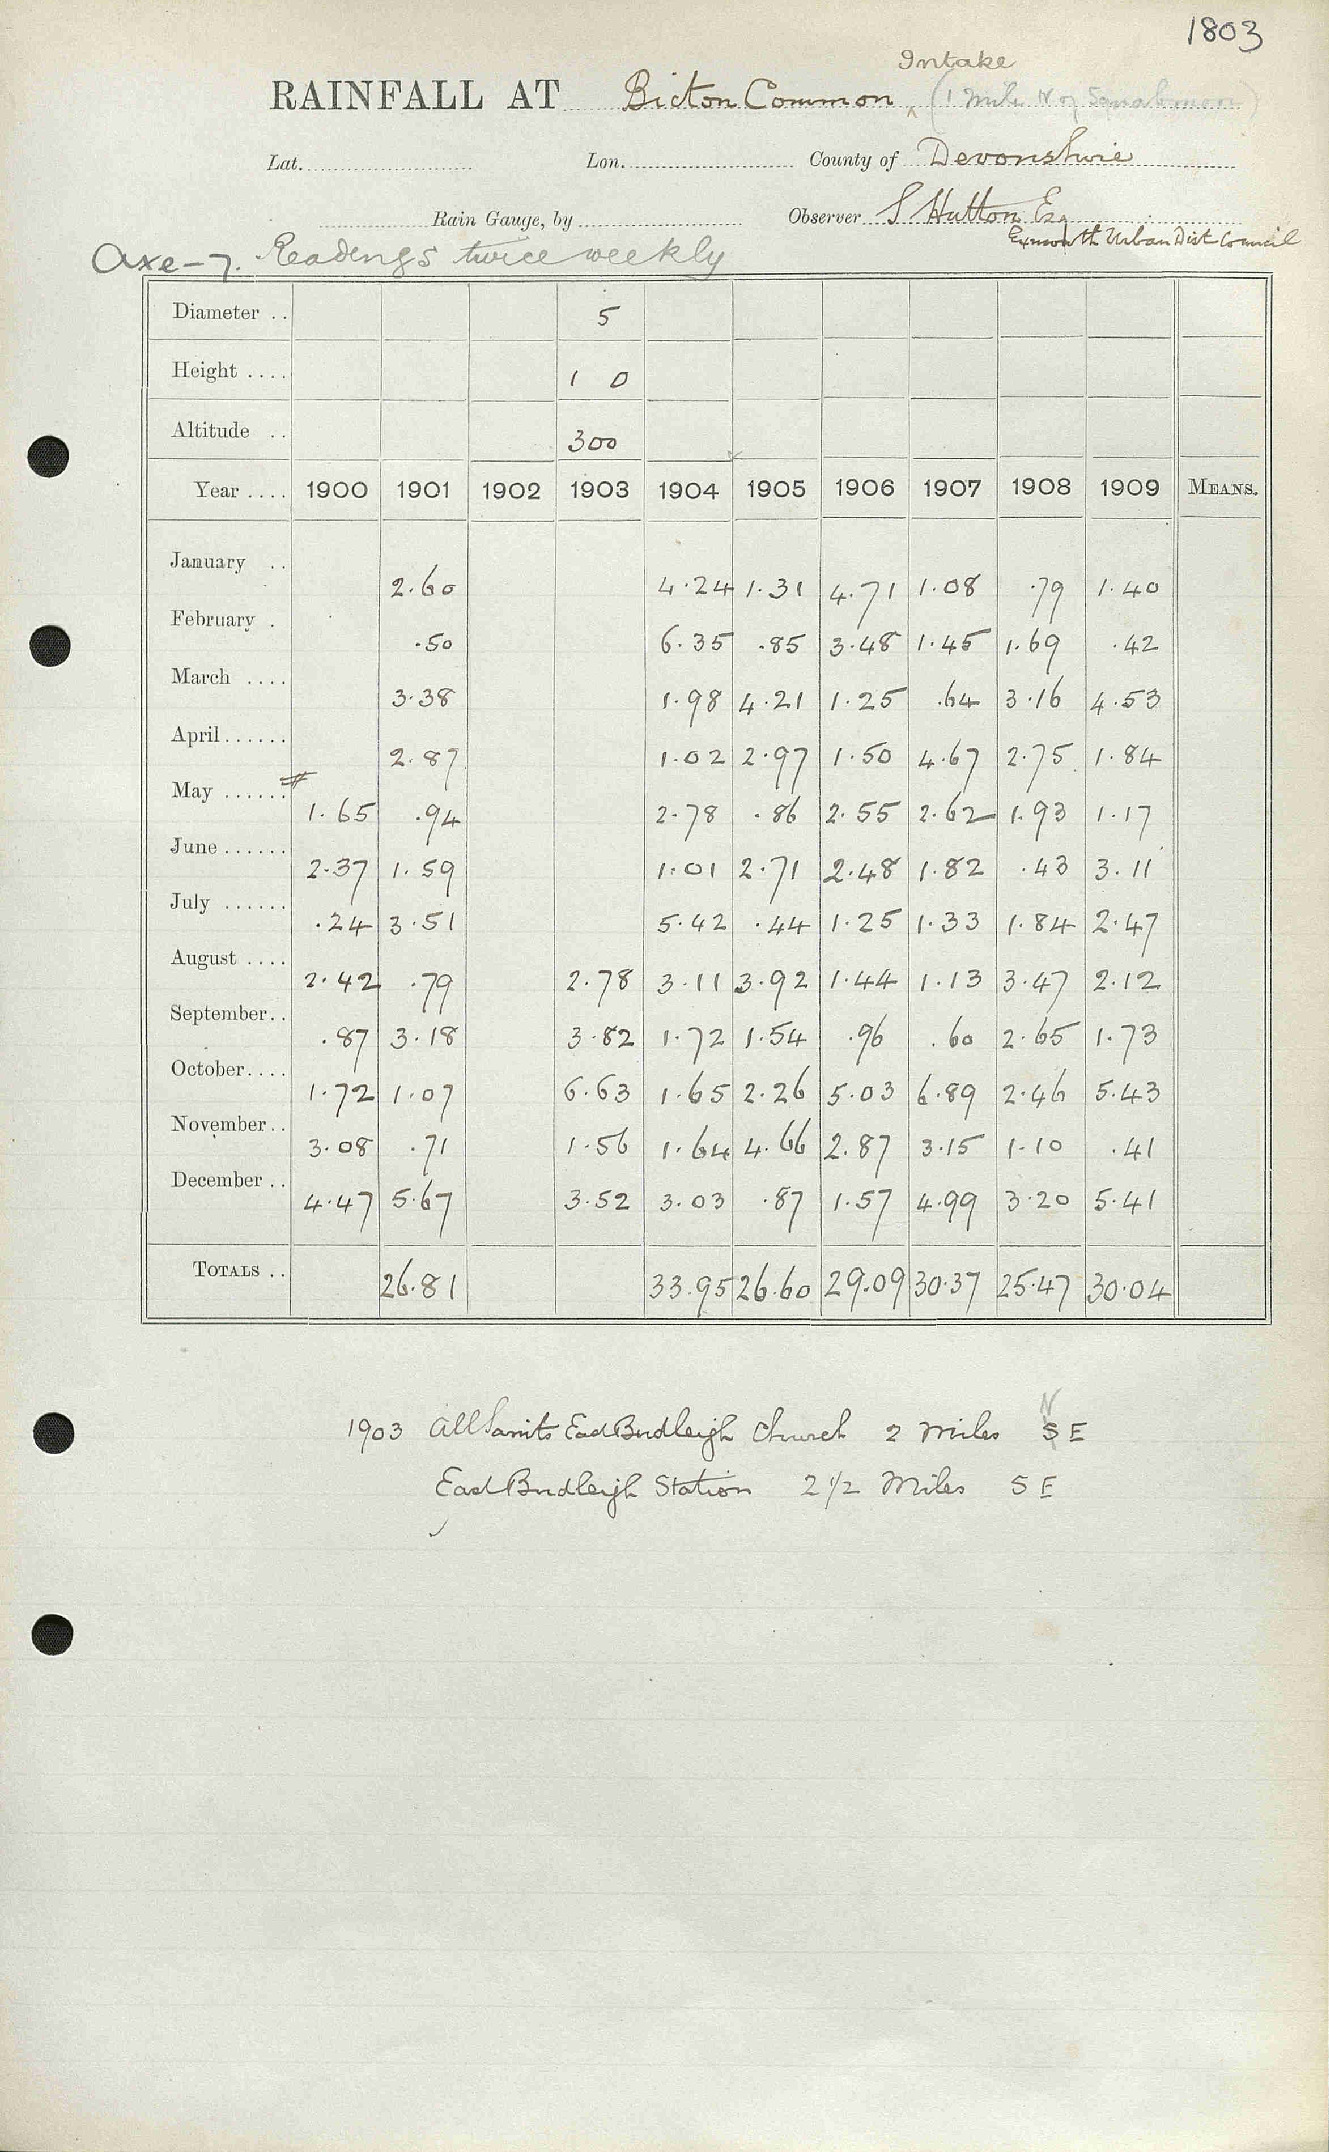 1803
Intake
RAINFALL AT Bicton Common (1 Mile N of
Lat. Lon. County of Devonshire
Rain Gauge, by Observer S Hutton Esq
Exmouth Urban Dist Council
Axe-7. Readings twice weekly
Diameter .. 5
Height .... 1 0
Altitude .. 300
Year .... 1900 1901 1902 1903 1904 1905 1906 1907 1908 1909 MEANS.
January .. 2.60 4.24 1.31 4.71 1.08 .79 1.40
February . .50 6.35 .85 3.48 1.45 1.69 .42
March .... 3.38 1.98 4.21 1.25 .64 3.16 4.53
April...... 2.87 1.02 2.97 1.50 4.67 2.75 1.84
May ...... # 1.65 .94 2.78 .86 2.55 2.62 1.93 1.17
June ...... 2.37 1.59 1.01 2.71 2.48 1.82 .43 3.11
July ...... .24 3.51 5.42 .44 1.25 1.33 1.84 2.47
August .... 2.42 .79 2.78 3.11 3.92 1.44 1.13 3.47 2.12
September.. .87 3.18 3.82 1.72 1.54 .96 .60 2.65 1.73
October.... 1.72 1.07 6.63 1.65 2.26 5.03 6.89 2.46 5.43
November.. 3.08 .71 1.56 1.64 4.66 2.87 3.15 1.10 .41
December .. 4.47 5.67 3.52 3.03 .87 1.57 4.99 3.20 5.41
TOTALS .. 26.81 33.95 26.60 29.09 30.37 25.47 30.04
N
1903 All Saints East Budleigh Church 2 Miles S E
East Budleigh Station 2 1/2 Miles S E